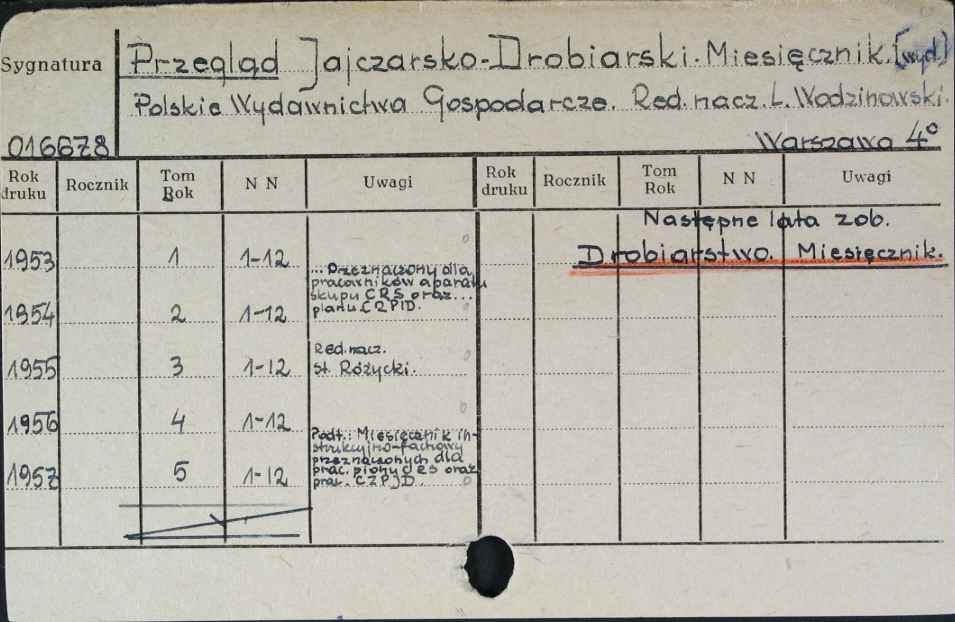 Sygnatura
Przegląd Jajczarsko-Drobiarski. Miesięcznik. [wyd.]
Polskie Wydawnictwa Gospodarcze. Red. nacz. L. Wodzinowski.
016678
Warszawa 4°
Rok druku Rocznik Tom Rok N N Uwagi Rok druku Rocznik Tom Rok N N Uwagi
Następne lata zob.
Drobiarstwo. Miesięcznik.
1953 1 1-12
...Przeznaczony dla
pracowników aparatu
skupu CRS oraz...
pianu CZPJD.
1954 2 1-12
Red. nacz.
1955 3 1-12 St. Różycki.
1956 4 1-12
Podt.: Miesięcznik in-
strukcyjno-fachowy
przeznaczonych dla
prac. pionu CRS oraz
prac. CZPJD.
1957 5 1-12